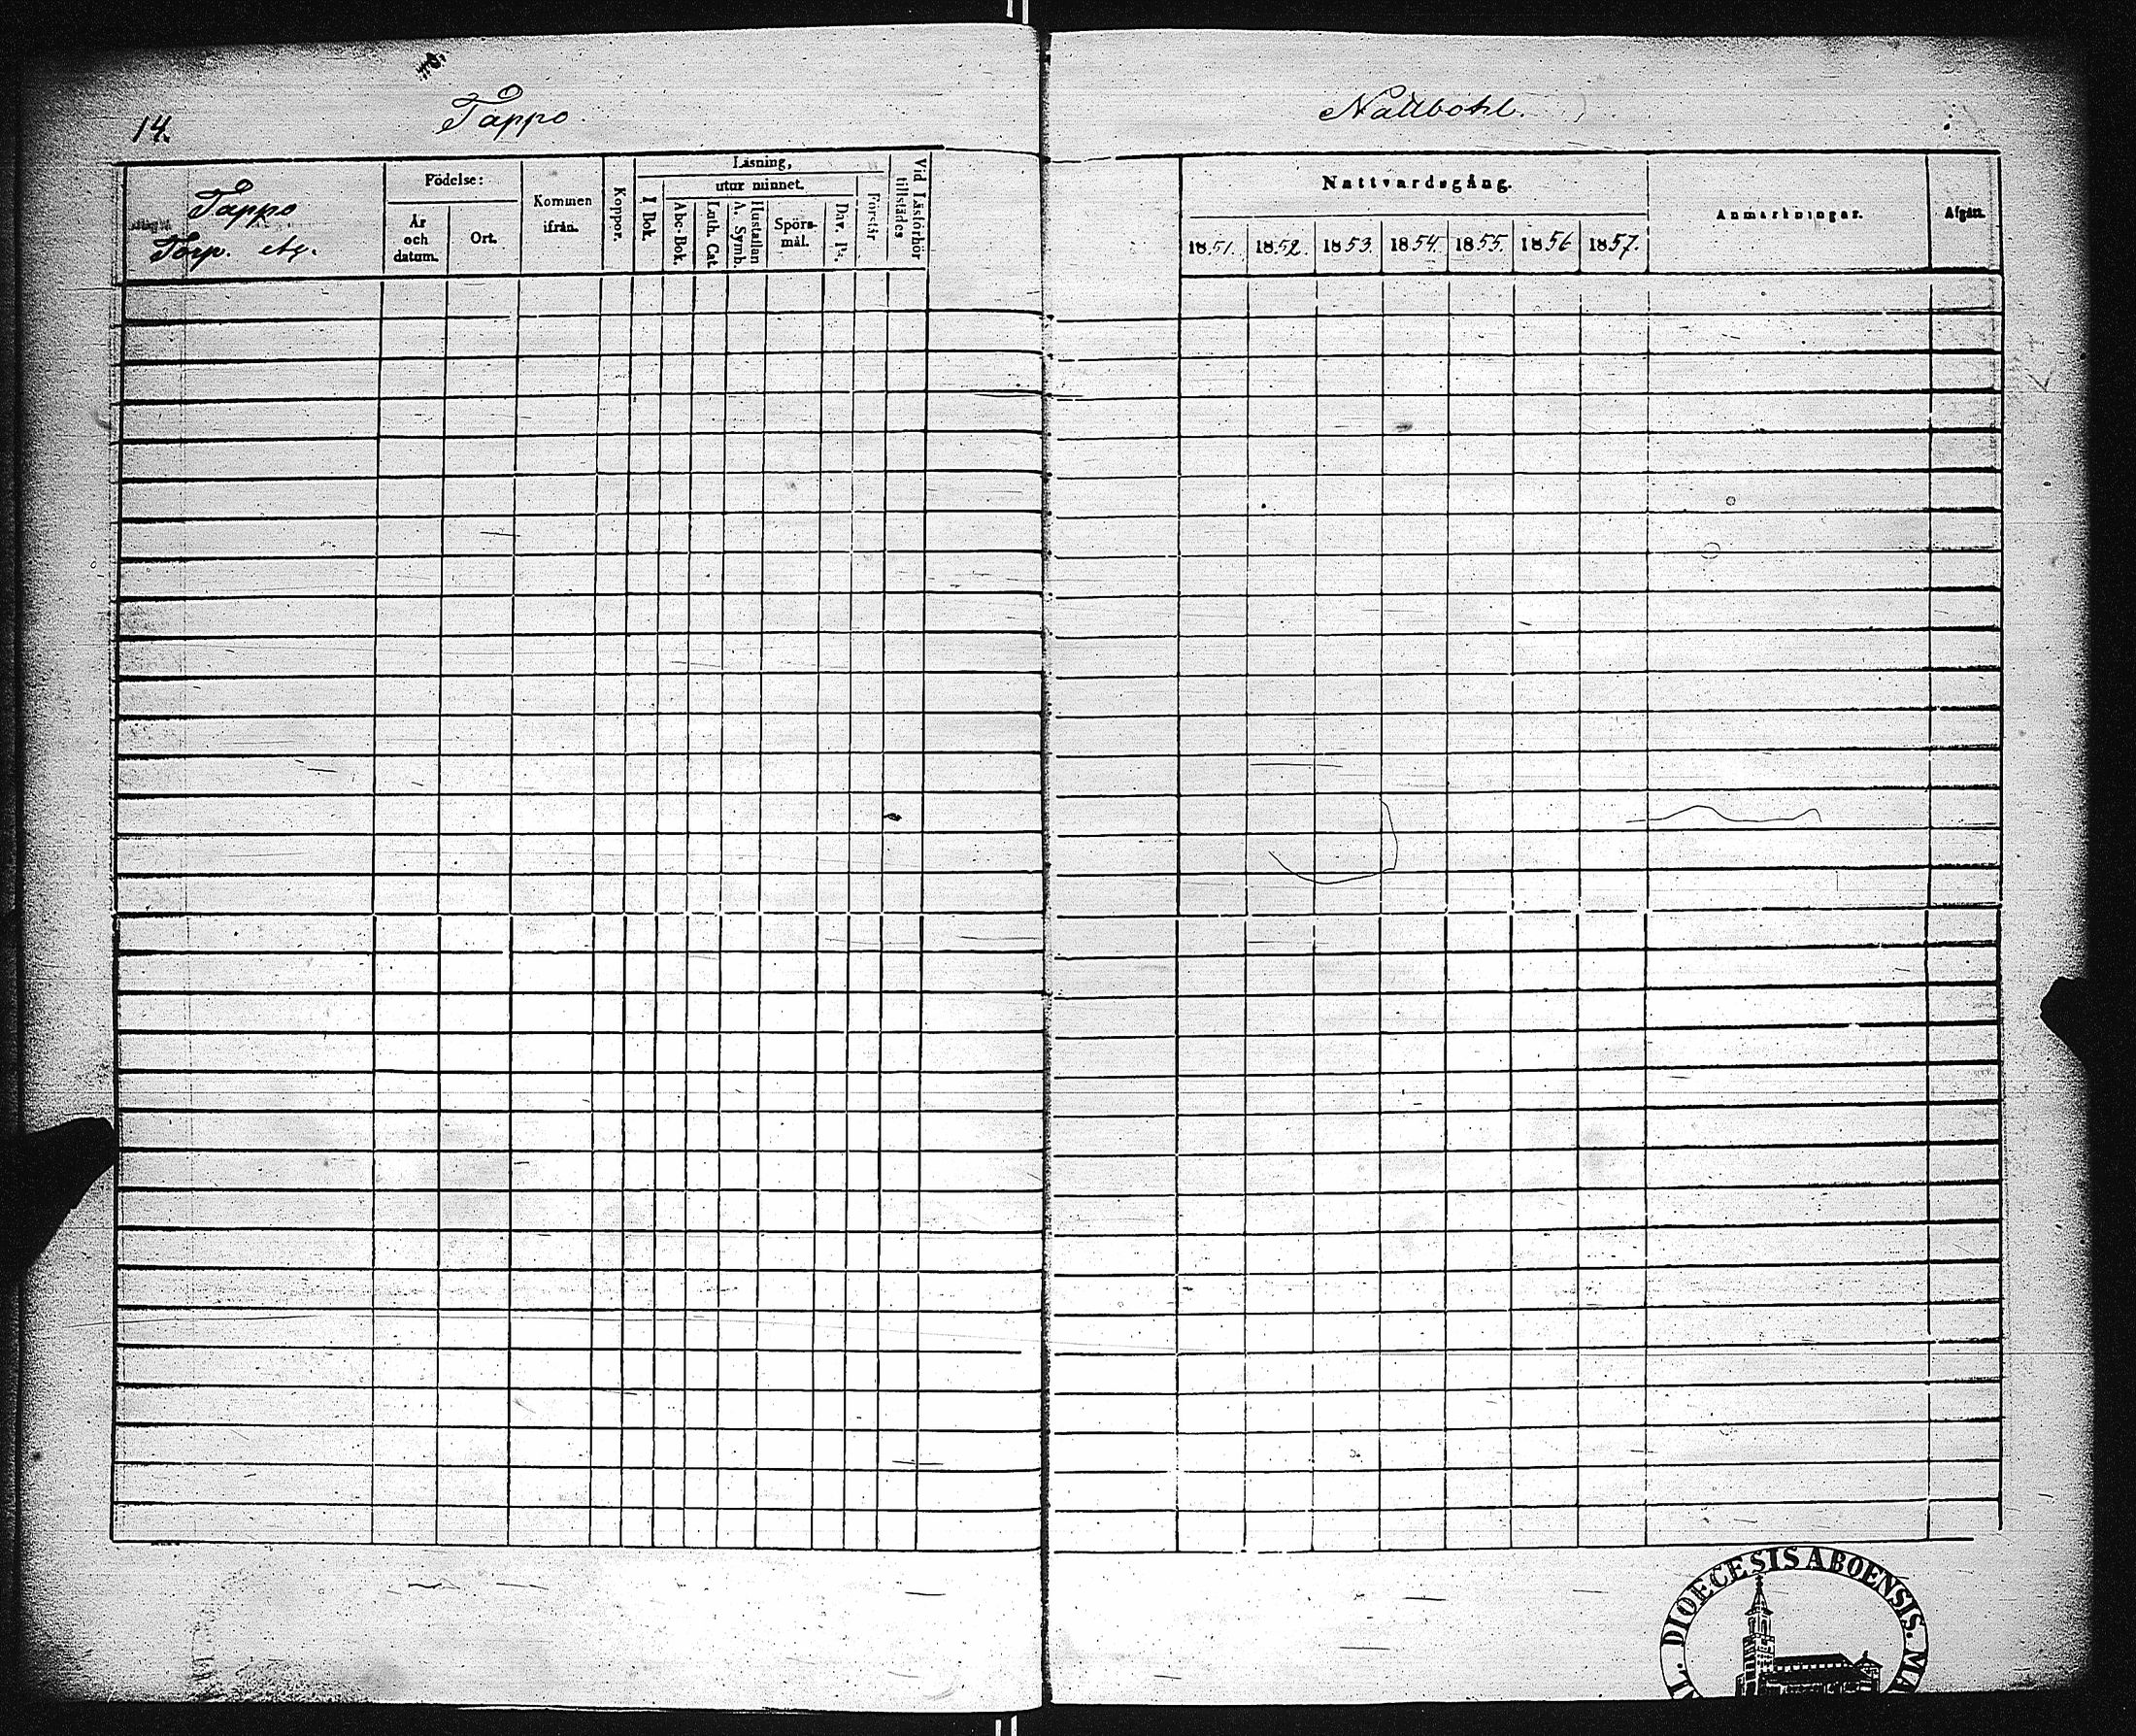 14.
Tappo
Nallbohl.
Tappo
Torp. etc.
Födelse:
År
och
datum.
Ort.
Kommen
ifrån.
Koppor.
Läsning,
I Bok.
utur minnet.
Abc-Bok.
Luth. Cat.
Hustaflan
A. Symb.
Spörs-
mål.
Dav. Ps.
Förstår
Vid Läsförhör
tillstädes
Nattvardsgång.
1851.
1852.
1853.
1854.
1855.
1856
1857.
Anmärkningar.
Afgått.
DIOECESIS ABOENSIS. MA